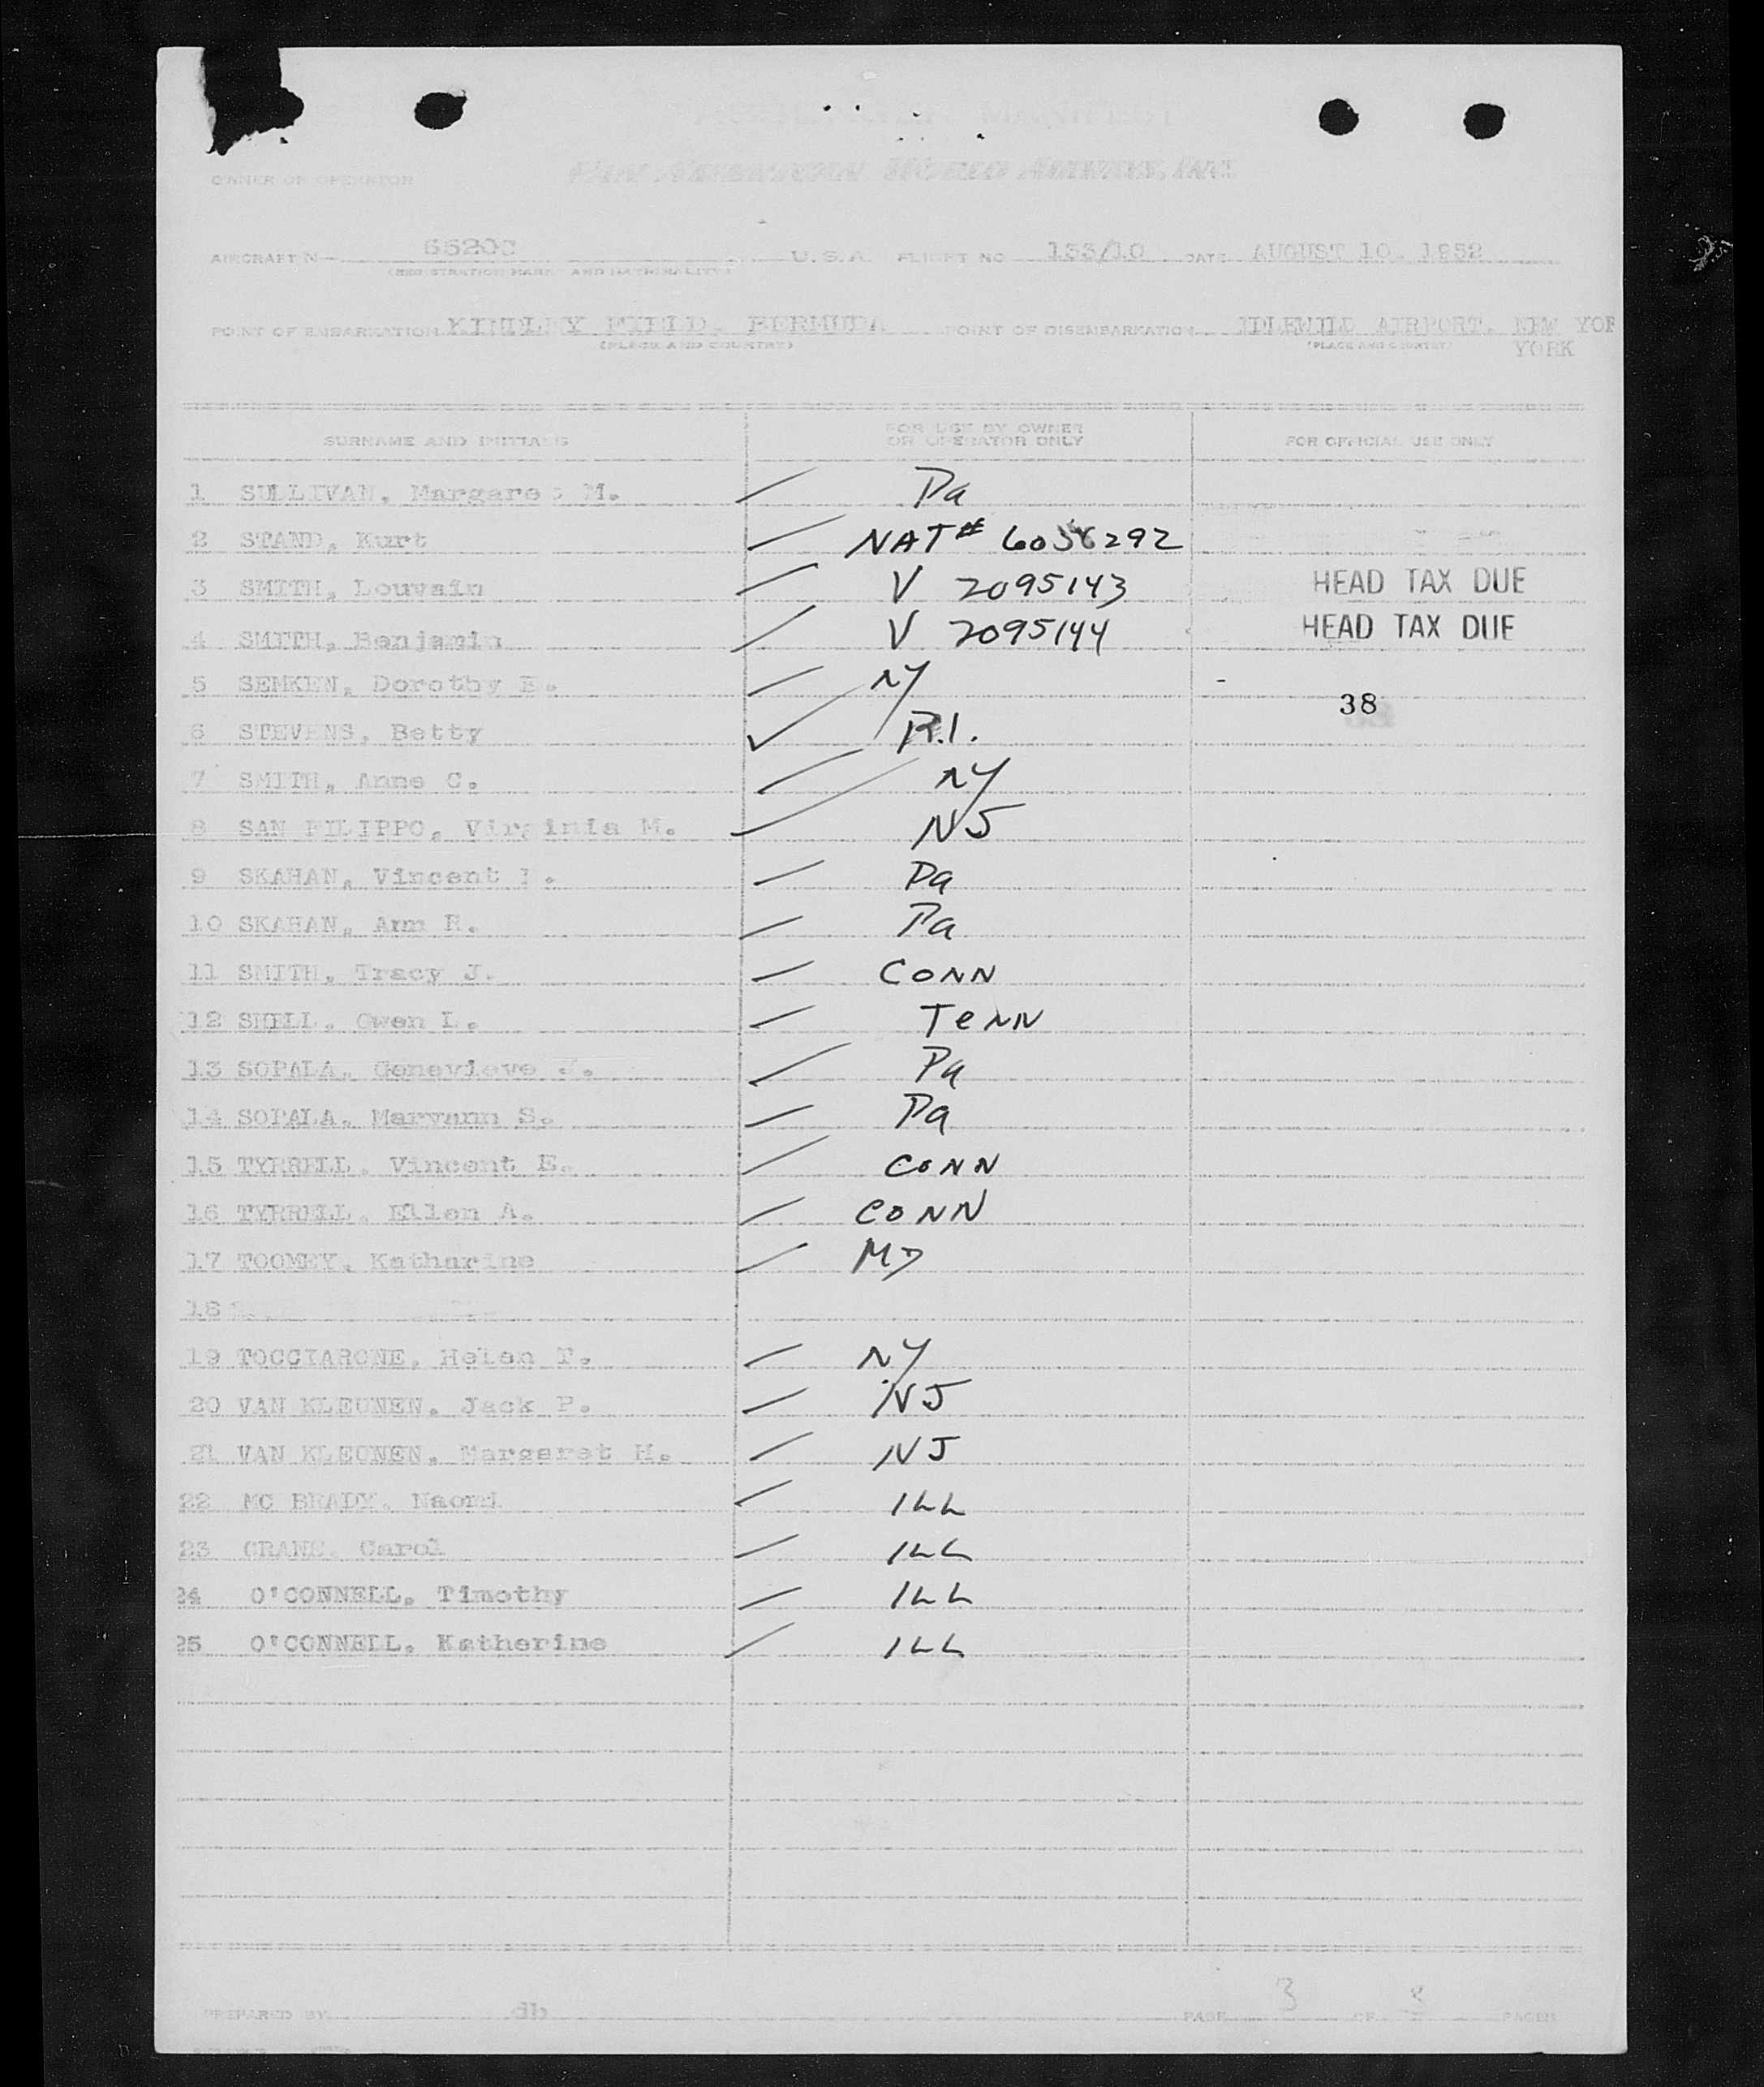 PASSENGER MANIFEST
OWNER OR OPERATOR PAN AMERICAN WORLD AIRWAYS, INC.
AIRCRAFT N— 6520C U.S.A. FLIGHT NO 153/10 DATE AUGUST 10, 1952
(REGISTRATION MARK AND NATIONALITY)
POINT OF EMBARKATION KINDLEY FIELD, BERMUDA POINT OF DISEMBARKATION IDLEWILD AIRPORT, NEW YOR
(PLACE AND COUNTRY) (PLACE AND COUNTRY) YORK
SURNAME AND INITIALS FOR USE BY OWNER OR OPERATOR ONLY FOR OFFICIAL USE ONLY
1 SULLIVAN, Margaret M. Pa
2 STAND, Kurt NAT# 292
3 SMITH, Louvain V 2095143 HEAD TAX DUE
4 SMITH, Benjamin V 2095144 HEAD TAX DUE
5 SEMKEN, Dorothy E. NY
38
6 STEVENS, Betty R.I.
7 SMITH, Anne C. NY
8 SAN FILIPPO, Virginia M. NJ
9 SKAHAN, Vincent Pa
10 SKAHAN, Ann R. Pa
11 SMITH, Tracy J. CONN
12 SHELL, Gwen L. TeNN
13 SOPALA, Genevieve Pa
14 SOPALA, Maryann S. Pa
15 TYRRELL, Vincent E. CONN
16 TYRRELL, Ellen A. CONN
17 TOOMEY, Katharine MD
18
19 TOCCIARONE, Helen T. NY
20 VAN KLEUNEN, Jack P. NJ
21 VAN KLEUNEN, Margaret H. NJ
22 MC BRADY, Naomi ILL
23 CRANE, Carol ILL
24 O'CONNELL, Timothy ILL
25 O'CONNELL, Katherine ILL
PREPARED BY db PAGE 3 OF PAGES